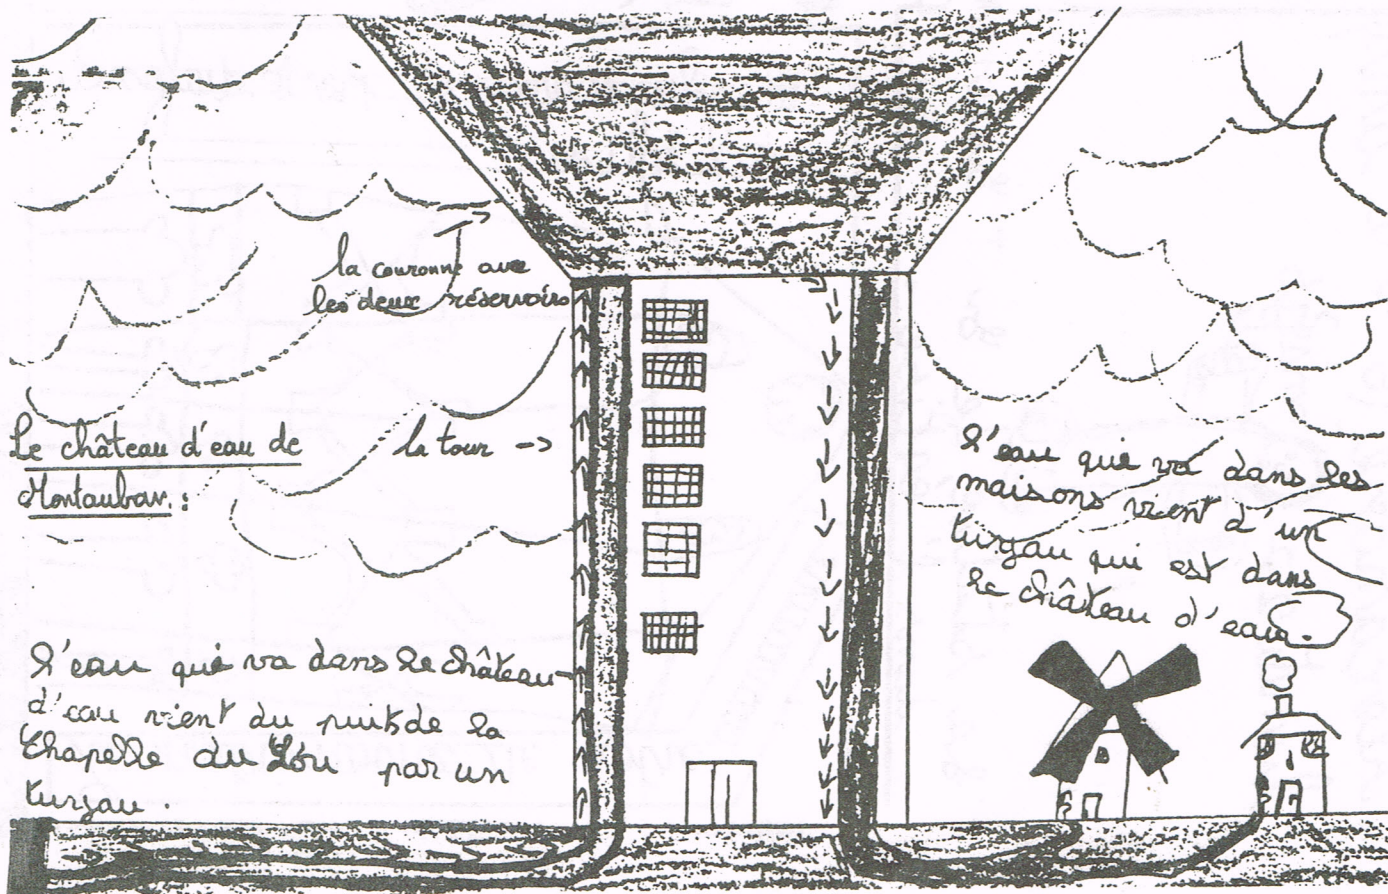 la couronne avec
les deux réservoirs
Le château d'eau de
Montauban :
la tour ->
l'eau qui va dans les
maisons vient d'un
tuyau qui est dans
le château d'eau.
l'eau qui va dans le château
d'eau vient du puits de la
Chapelle du Lou par un
tuyau.